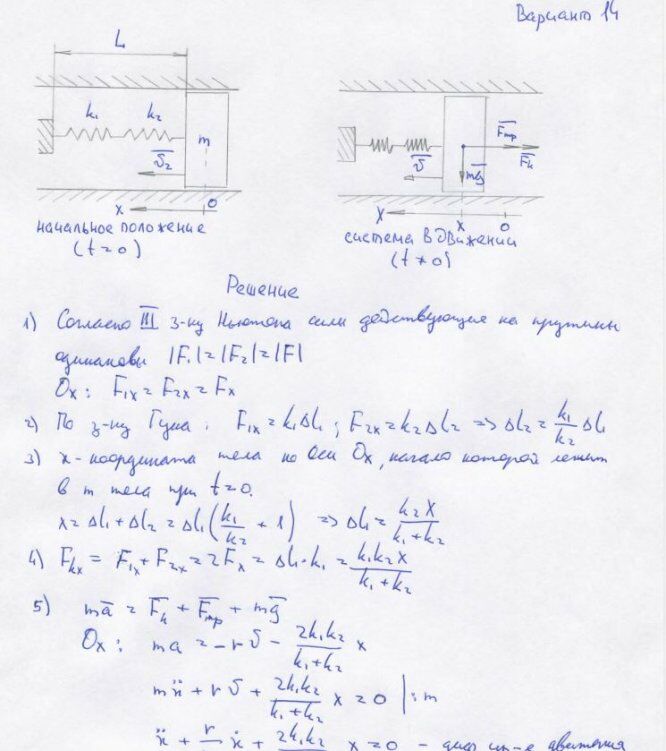 Вариант 14
L
k₁ k₂
m
v̄₂
x 0
начальное положение
(t=0)
F̄тр
F̄k
v̄
mḡ
x x 0
система в движении
(t≠0)
Решение
1) Согласно III з-ну Ньютона силы действующие на пружины
одинаковы |F₁|=|F₂|=|F|
Ox: F₁x = F₂x = Fx
2) По з-ну Гука: F₁x = k₁Δl₁; F₂x = k₂Δl₂ => Δl₂ = k₁/k₂ Δl₁
3) x - координата тела по оси Ox, начало которой лежит
в m тела при t=0.
x = Δl₁ + Δl₂ = Δl₁(k₁/k₂ + 1) => Δl₁ = k₂x/(k₁+k₂)
4) Fkx = F₁x + F₂x = 2Fx = Δl₁·k₁ = k₁k₂x/(k₁+k₂)
5) mā = F̄k + F̄тр + mḡ
Ox: ma = -rv̄ - 2k₁k₂/(k₁+k₂) x
mẍ + rv̄ + 2k₁k₂/(k₁+k₂) x = 0 |:m
ẍ + r ẋ + 2k₁k₂ x = 0 - диф. ур-е движения